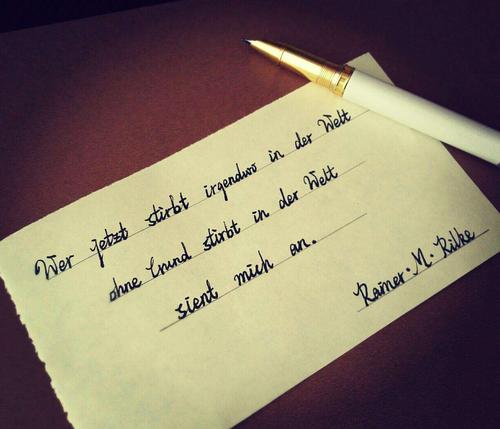 Wer jetzt stirbt irgendwo in der Welt
ohne Grund stirbt in der Welt
sient mich an.
Rainer·M·Rilke